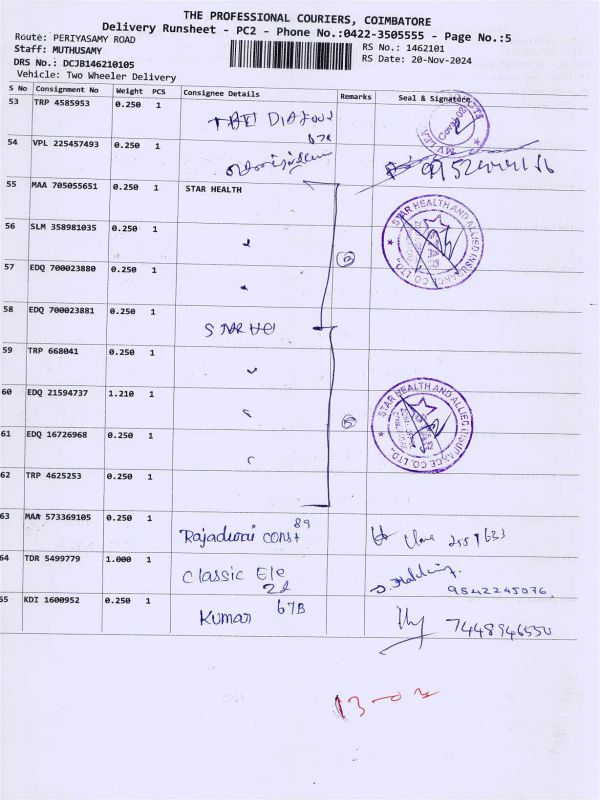 THE PROFESSIONAL COURIERS, COIMBATORE
Delivery Runsheet - PC2 - Phone No.:0422-3505555 - Page No.:5
Route: PERIYASAMY ROAD
RS No.: 1462101
Staff: MUTHUSAMY
RS Date: 20-Nov-2024
DRS No.: DCJB146210105
Vehicle: Two Wheeler Delivery
S No Consignment No Weight PCS Consignee Details Remarks Seal & Signature
53 TRP 4585953 0.250 1
54 VPL 225457493 0.250 1
55 MAA 705055651 0.250 1 STAR HEALTH
STAR HEALTH AND ALLIED INSURANCE CO. LTD.,
56 SLM 358981035 0.250 1
57 EDQ 700023880 0.250 1
58 EDQ 700023881 0.250 1
STAR HE
59 TRP 668041 0.250 1
60 EDQ 21594737 1.210 1
STAR HEALTH AND ALLIED INSURANCE CO. LTD.,
61 EDQ 16726968 0.250 1
62 TRP 4625253 0.250 1
63 MAA 573369105 0.250 1 Rajadurai const 89
64 TDR 5499779 1.000 1 Classic Ele 22 9842245076.
65 KDI 1600952 0.250 1 Kumar 67B 7448946550